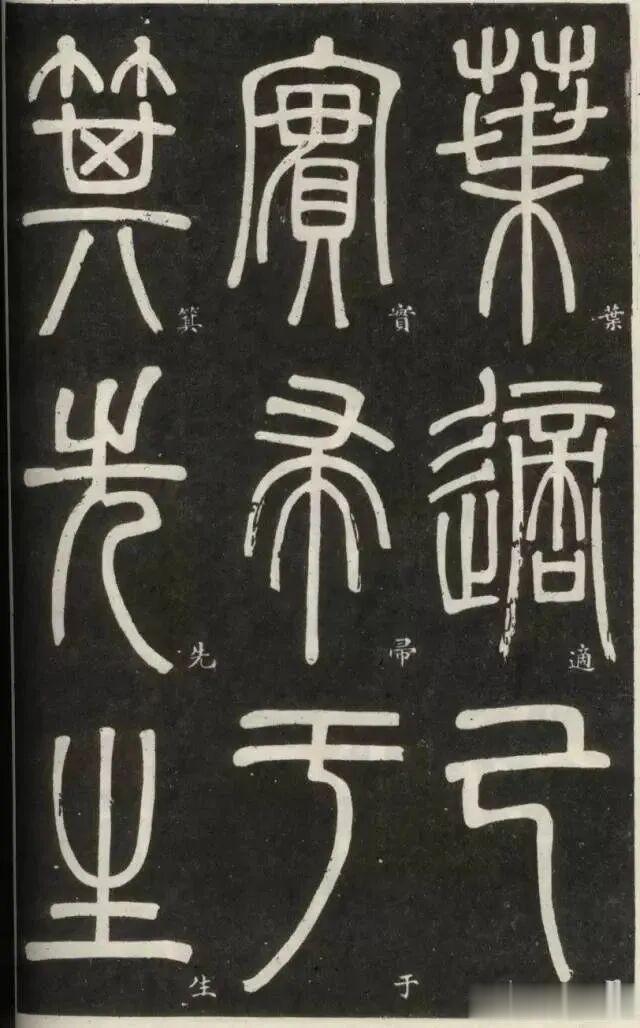 葉適己
實帚于
箕先生